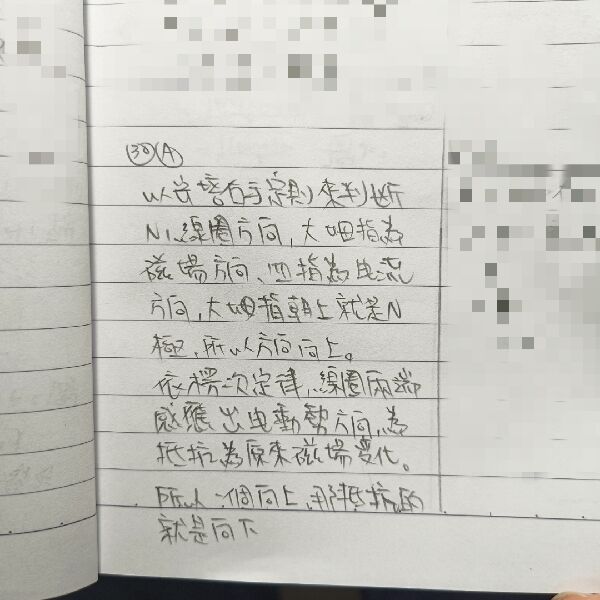 ㊳(A)
以安培右手定則來判斷
N1線圈方向,大姆指為
磁場方向、四指為电流
方向,大姆指朝上就是N
極,所以方向向上。
依楞次定律,線圈兩端
感應出电動勢方向,為
抵抗為原來磁場變化。
所以一個向上,那抵抗的
就是向下